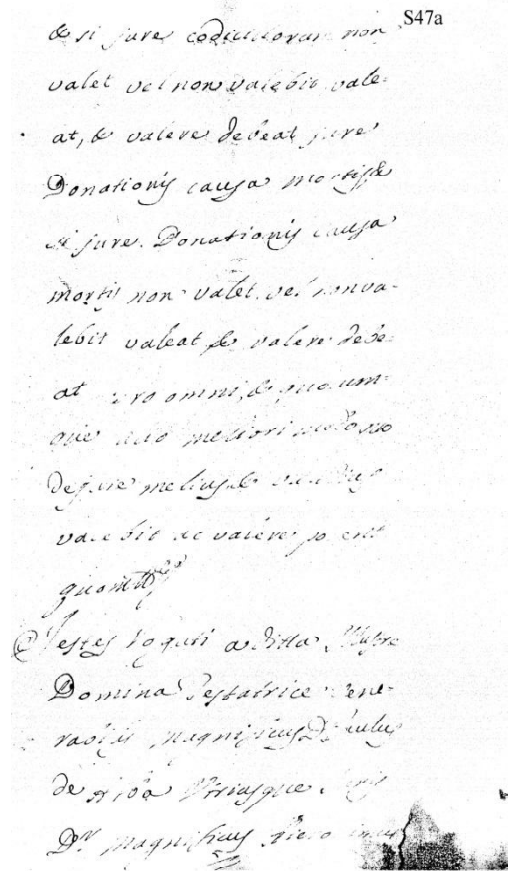 S47a
& si jure codicillorum non
valet vel non valebit vale-
at, & valere debeat jure
Donationis causa mortis &
si jure Donationis causa
mortis non valet vel non va-
lebit valeat & valere debe-
at omni, & quocum-
que meliori modo
de jure melius &
valebit ac valere poterit
Testes rogati a dicta Illustre
Domina Testatrice vene-
rabilis magnificus
de Utriusque Juris
Dr. magnificus Piero